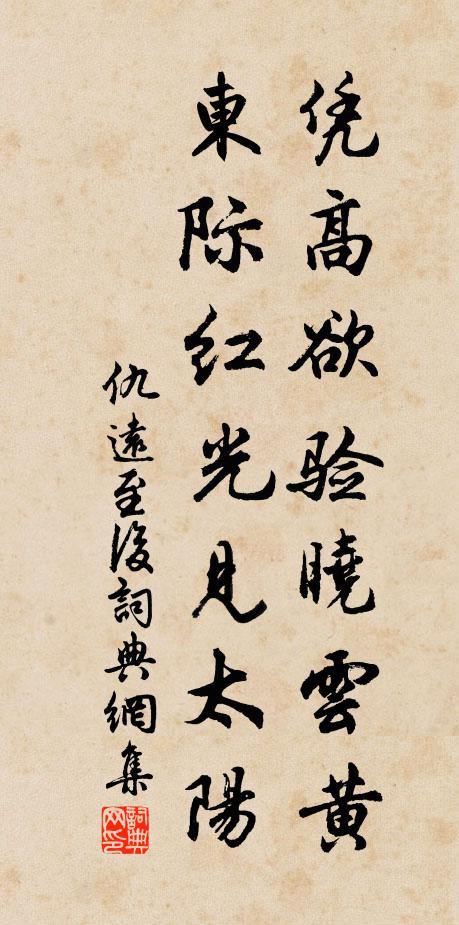 凭高欲验曉雲黄
東际红光見太陽
仇遠至後詞典網集
詞典网印